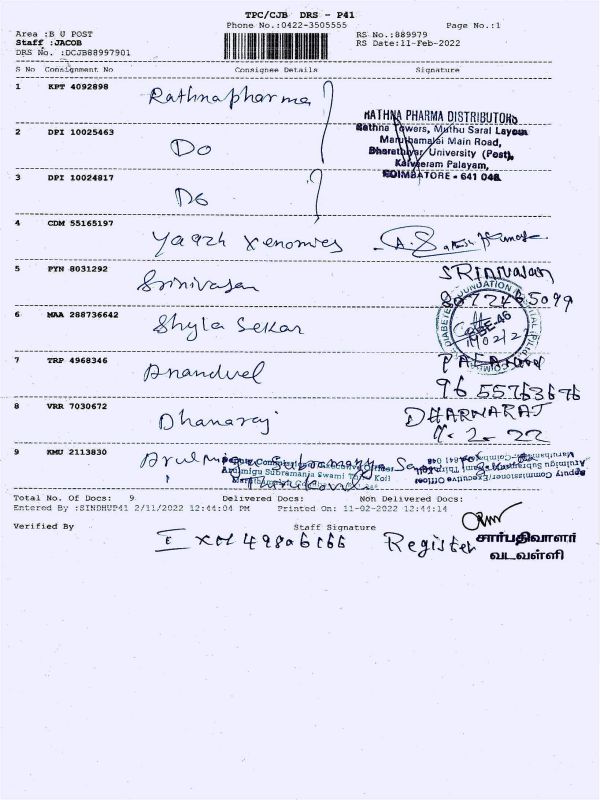 TPC/CJB DRS - P41
Phone No.:0422-3505555
Page No.:1
Area :B U POST
RS No.:889979
Staff :JACOB
RS Date:11-Feb-2022
DRS No. :DCJB88997901
S No Consignment No Consignee Details Signature
1 KPT 4092898 Rathnapharma
RATHNA PHARMA DISTRIBUTORS
Rathna Towers, Muthu Saral Layout
Maruthamalai Main Road,
Bharathiyar University (Post),
Kalveeram Palayam,
COIMBATORE - 641 046.
2 DPI 10025463 Do
3 DPI 10024817 Do
4 CDM 55165197 Yaazh Xenomics
5 PYN 8031292 Srinivasan SRINIVASAN
8072465099
6 MAA 288736642 Shyla Sekar
7 TRP 4968346 Anandvel
9655763676
8 VRR 7030672 Dhanaraj DHARNARAJ
9 KMU 2113830
Arulmigu Subramania Swami Thiru Koil
Deputy Commissioner/Executive Officer
Arulmigu Subramania Swami Thiru Koil
Total No. Of Docs: 9 Delivered Docs: Non Delivered Docs:
Entered By :SINDHUP41 2/11/2022 12:44:04 PM Printed On: 11-02-2022 12:44:14
Verified By Staff Signature
Register
சார்பதிவாளர்
வடவள்ளி